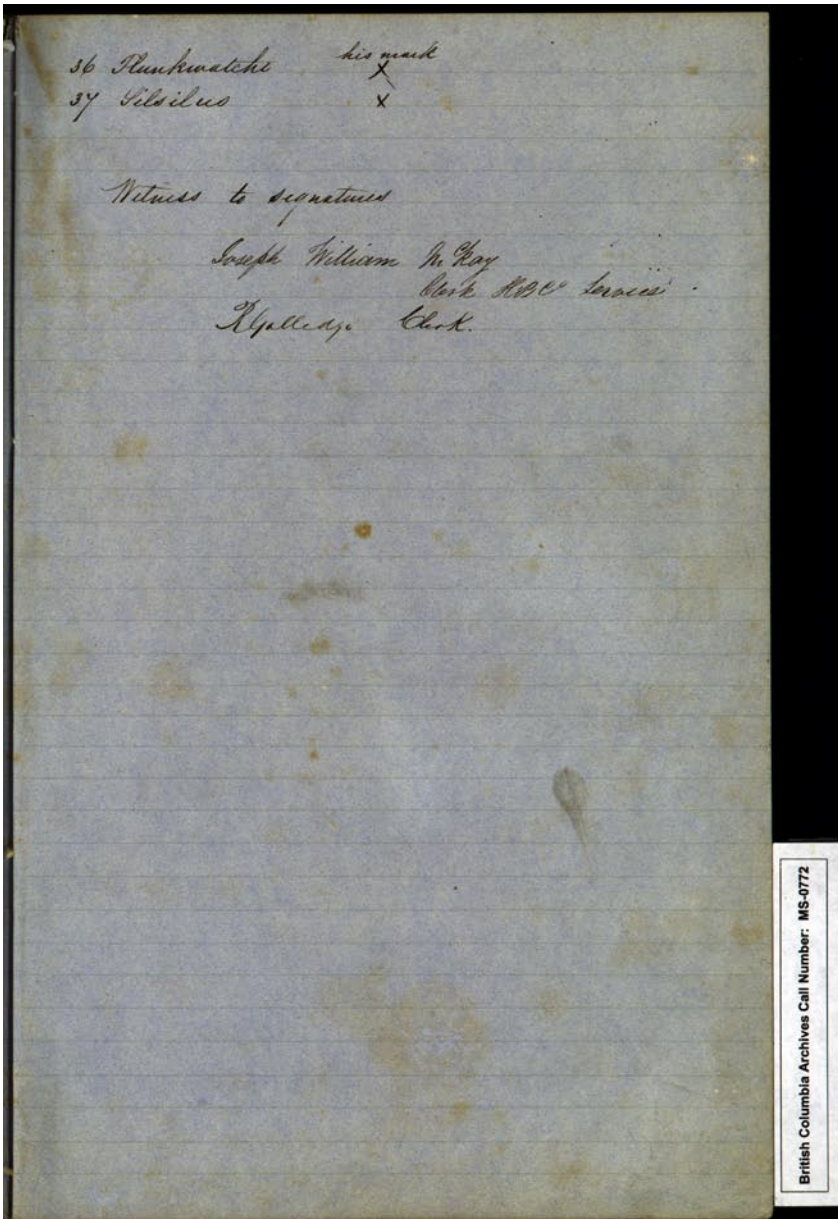 his mark
36 Hunkwatche X
37 Silsilus X
Witness to signatures
Joseph William McKay
Clerk HBCo Service
R Golledge Clerk.
British Columbia Archives Call Number: MS-0772